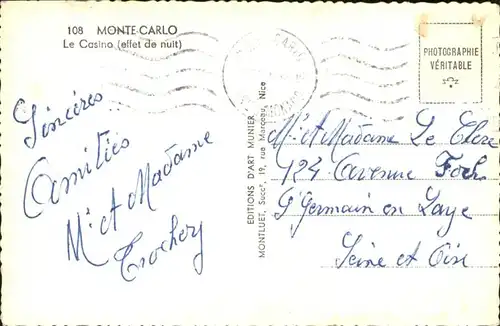 108 MONTE-CARLO
Le Casino (effet de nuit)
PHOTOGRAPHIE
VÉRITABLE
Sincères
Amitiés
Mr et Madame
EDITIONS D'ART MUNIER
MONTLUET, Succr, 19, rue Marceau, Nice
Mr et Madame Le Clerc
124 Avenue Foch
St Germain en Laye
Seine et Oise